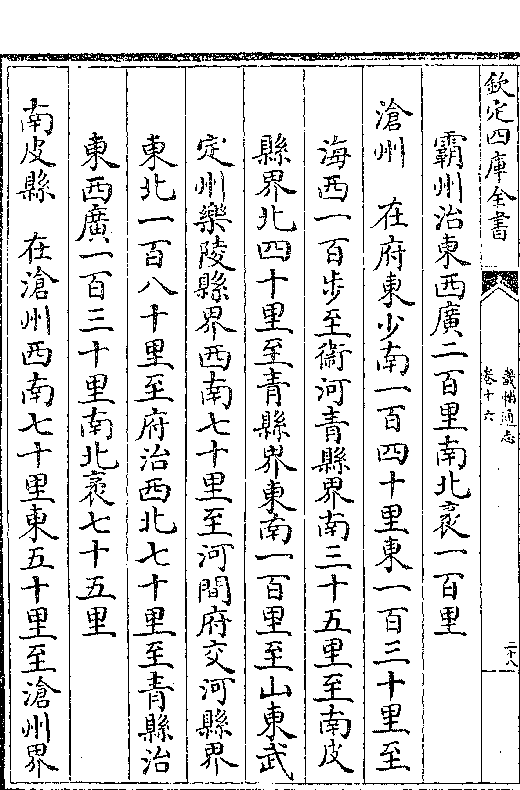 欽定四庫全書
畿輔通志
卷十六
二十八
霸州治東西廣二百里南北袤一百里
滄州　在府東少南一百四十里東一百三十里至
海西一百步至衛河青縣界南三十五里至南皮
縣界北四十里至青縣界東南一百里至山東武
定州樂陵縣界西南七十里至河間府交河縣界
東北一百八十里至府治西北七十里至青縣治
東西廣一百三十里南北袤七十五里
南皮縣　在滄州西南七十里東五十里至滄州界